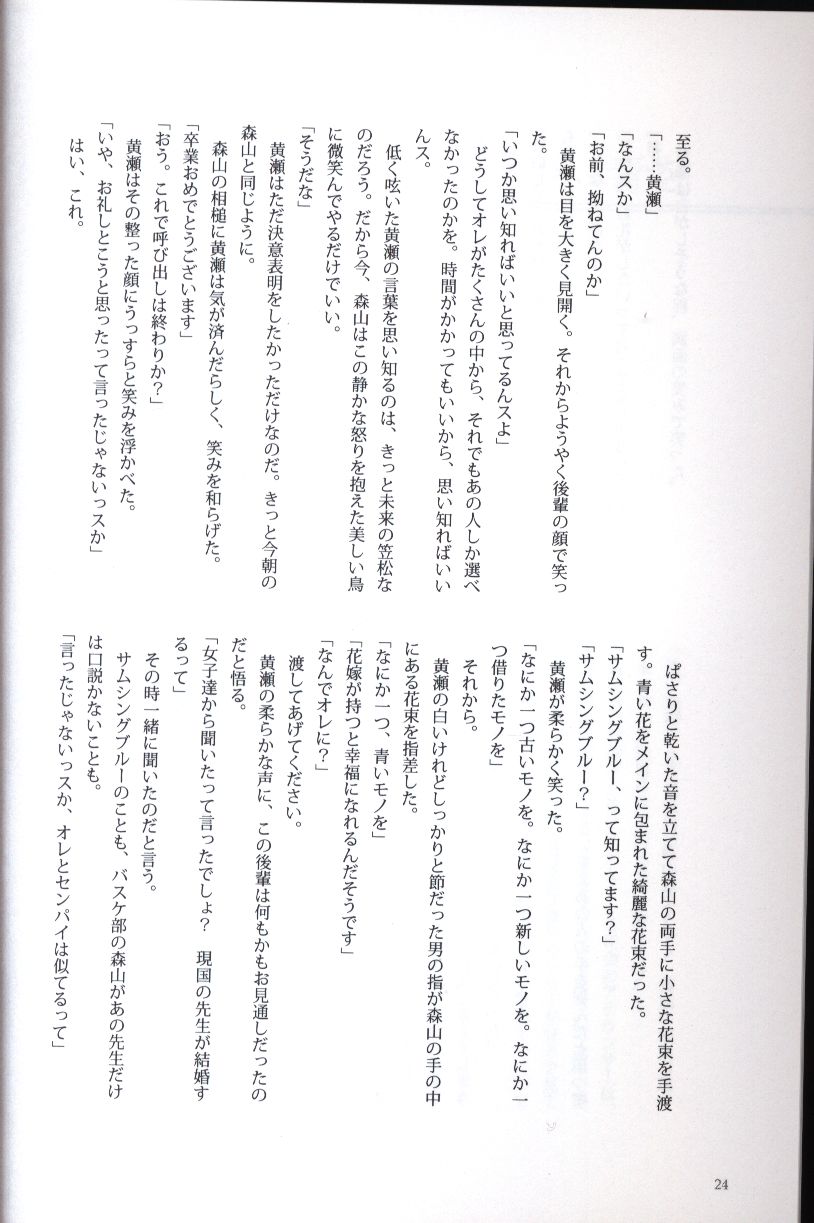 至る。
「……黄瀬」
「なんスか」
「お前、拗ねてんのか」
　黄瀬は目を大きく見開く。それからようやく後輩の顔で笑っ
た。
「いつか思い知ればいいと思ってるんスよ」
　どうしてオレがたくさんの中から、それでもあの人しか選べ
なかったのかを。時間がかかってもいいから、思い知ればいい
んス。
　低く呟いた黄瀬の言葉を思い知るのは、きっと未来の笠松な
のだろう。だから今、森山はこの静かな怒りを抱えた美しい鳥
に微笑んでやるだけでいい。
「そうだな」
　黄瀬はただ決意表明をしたかっただけなのだ。きっと今朝の
森山と同じように。
　森山の相槌に黄瀬は気が済んだらしく、笑みを和らげた。
「卒業おめでとうございます」
「おう。これで呼び出しは終わりか？」
　黄瀬はその整った顔にうっすらと笑みを浮かべた。
「いや、お礼しとこうと思ったって言ったじゃないっスか」
　はい、これ。
　ぱさりと乾いた音を立てて森山の両手に小さな花束を手渡
す。青い花をメインに包まれた綺麗な花束だった。
「サムシングブルー、って知ってます？」
「サムシングブルー？」
　黄瀬が柔らかく笑った。
「なにか一つ古いモノを。なにか一つ新しいモノを。なにか一
つ借りたモノを」
　それから。
　黄瀬の白いけれどしっかりと節だった男の指が森山の手の中
にある花束を指差した。
「なにか一つ、青いモノを」
「花嫁が持つと幸福になれるんだそうです」
「なんでオレに？」
　渡してあげてください。
　黄瀬の柔らかな声に、この後輩は何もかもお見通しだったの
だと悟る。
「女子達から聞いたって言ったでしょ？　現国の先生が結婚す
るって」
　その時一緒に聞いたのだと言う。
　サムシングブルーのことも、バスケ部の森山があの先生だけ
は口説かないことも。
「言ったじゃないっスか、オレとセンパイは似てるって」
24